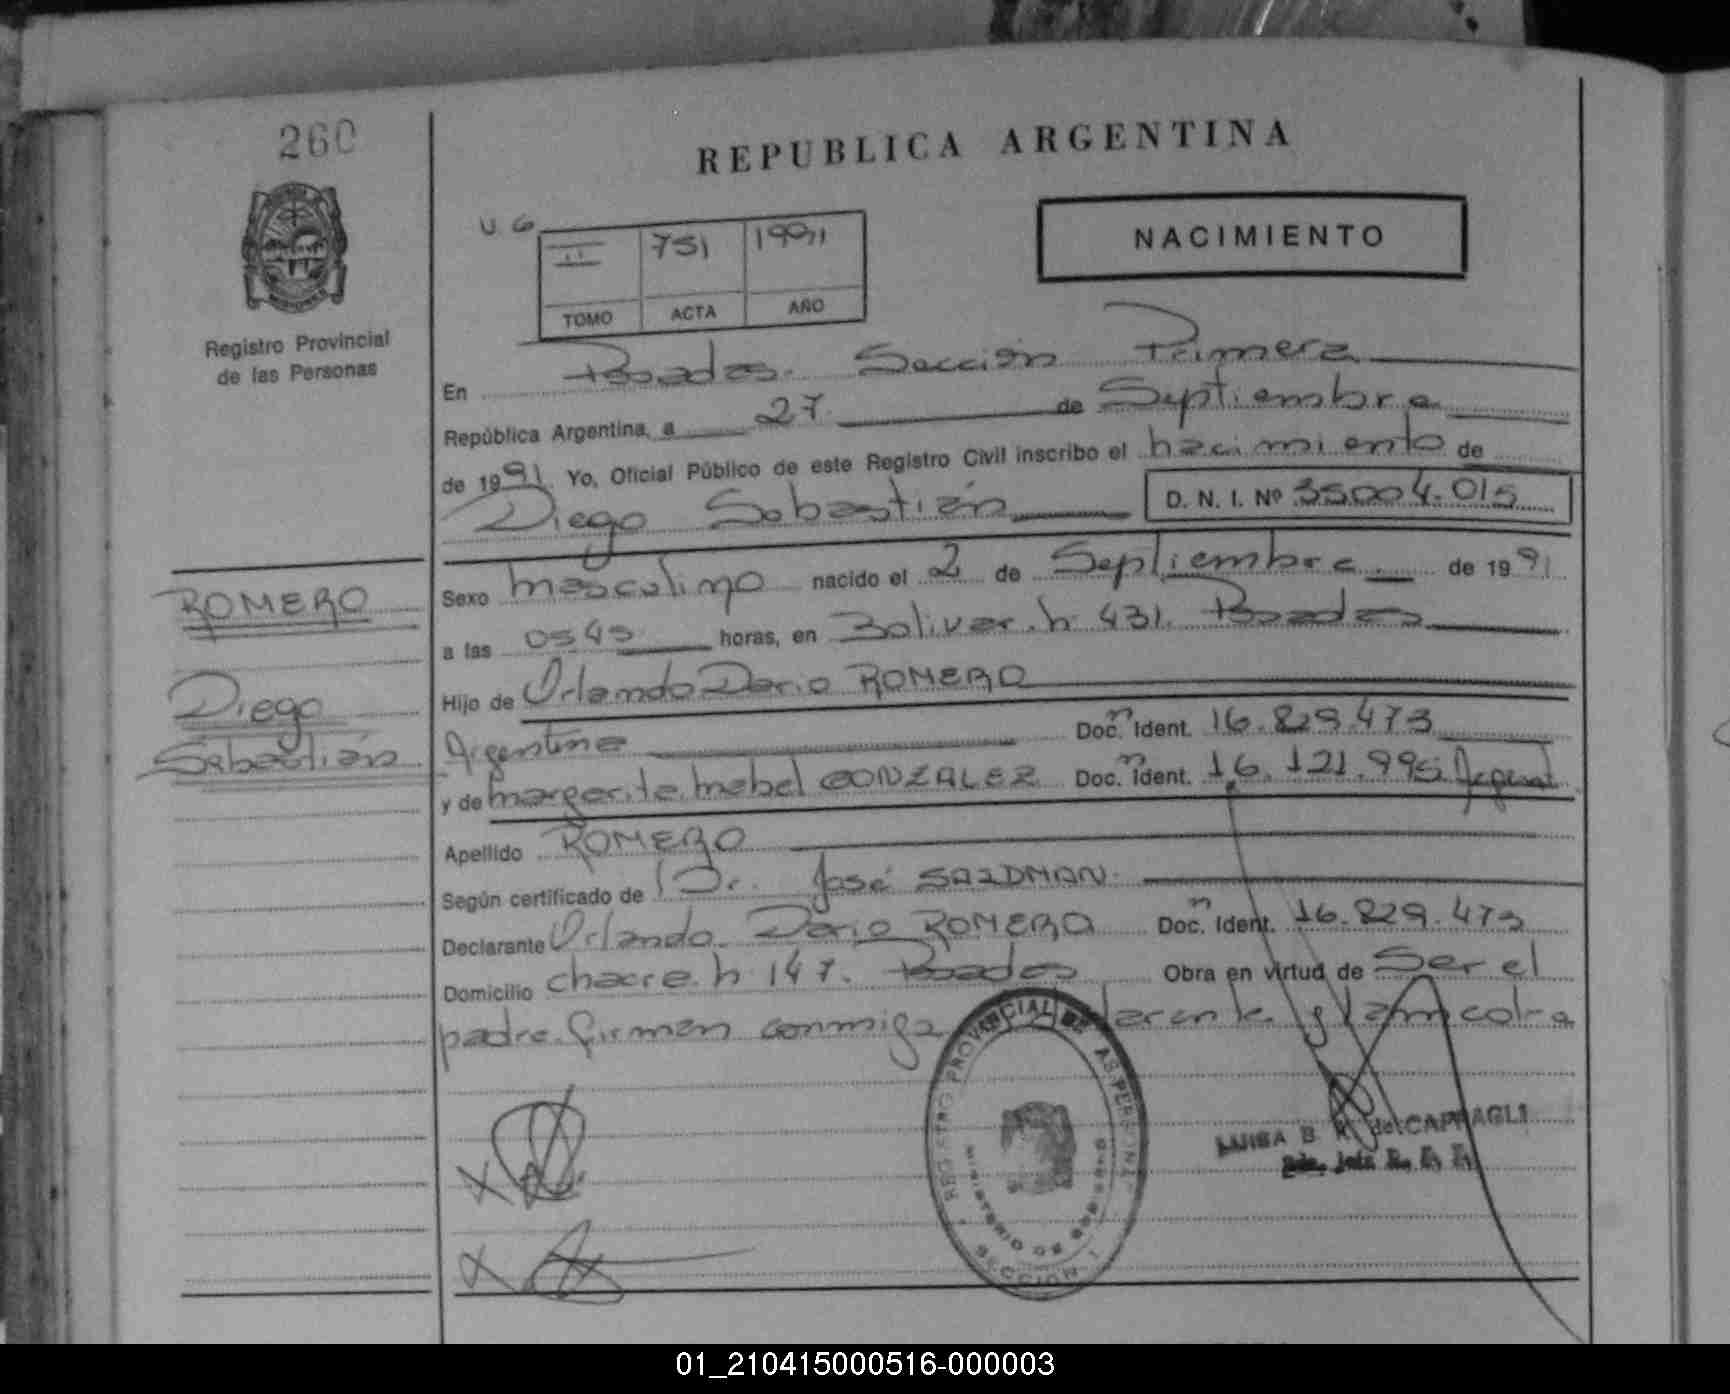 260
REPUBLICA ARGENTINA
Registro Provincial
de las Personas
U. G
II 751 1991
TOMO ACTA AÑO
NACIMIENTO
En Posadas. Sección Primera
República Argentina, a 27 de Septiembre
de 1991 Yo, Oficial Público de este Registro Civil inscribo el nacimiento de
Diego Sebastián D. N. I. Nº 35004.015
ROMERO
Diego
Sebastián
Sexo masculino nacido el 2 de Septiembre de 1991
a las 0545 horas, en Bolivar. h 431. Posadas
Hijo de Orlando Dario ROMERO
Argentina Doc. Ident. 16.829.473
y de Margarita Mabel GONZALEZ Doc. Ident. 16.121.995
Apellido ROMERO
Según certificado de Dr. José SAIDMAN
Declarante Orlando Dario ROMERO Doc. Ident. 16.829.473
Domicilio chacra. h 147. Posadas Obra en virtud de Ser el
padre. firman conmigo
REGISTRO PROVINCIAL DE LAS PERSONAS
MINISTERIO DE GOBIERNO
SECCION 1
LUISA B. K. de CAPRAGLI
01_210415000516-000003